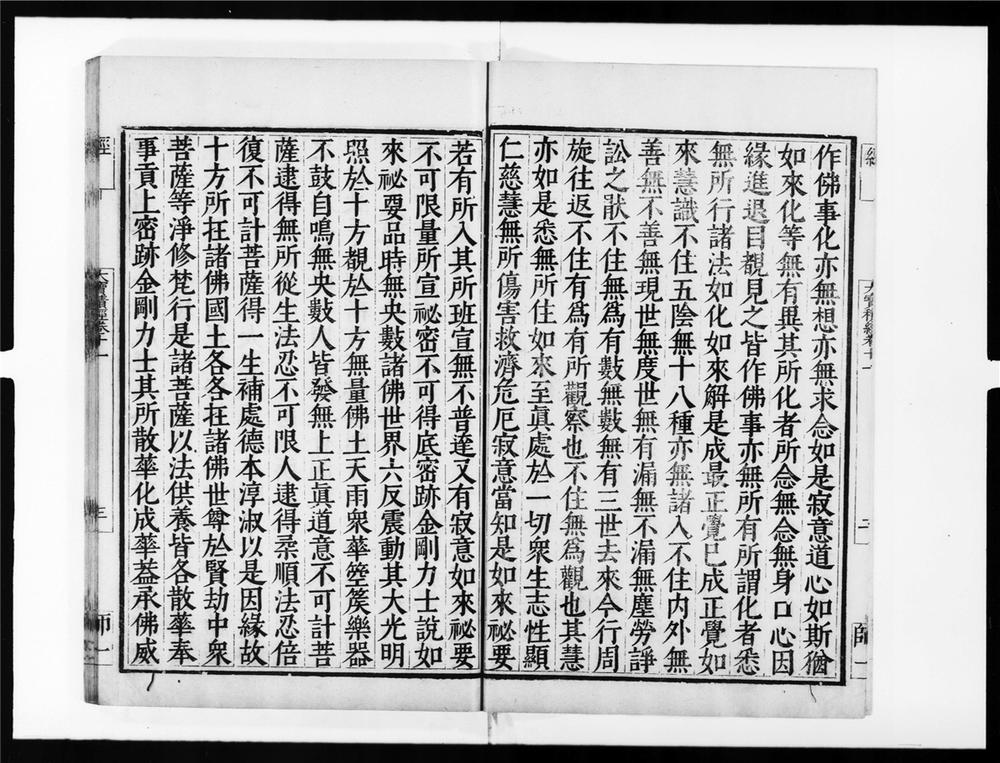 作佛事化亦無想亦無求念如是寂意道心如斯猶
如來化等無有異其所化者所念無念無身口心因
緣進退目覩見之皆作佛事亦無所有所謂化者悉
無所行諸法如化如來解是成最正覺已成正覺如
來慧識不住五陰無十八種亦無諸入不住內外無
善無不善無現世無度世無有漏無不漏無塵勞諍
訟之狀不住無為有數無數無有三世去來今行周
旋往返不住有為有所觀察也不住無為觀也其慧
亦如是悉無所住如來至真處於一切眾生志性顯
仁慈慧無所傷害救濟危厄寂意當知是如來祕要
若有所入其所班宣無不普達又有寂意如來祕要
不可限量所宣祕密不可得底密跡金剛力士說如
來祕要品時無央數諸佛世界六反震動其大光明
照於十方覩於十方無量佛土天雨眾華箜篌樂器
不鼓自鳴無央數人皆發無上正真道意不可計菩
薩逮得無所從生法忍不可限人逮得柔順法忍倍
復不可計菩薩得一生補處德本淳淑以是因緣故
十方所在諸佛國土各各在諸佛世尊於賢劫中眾
菩薩等淨修梵行是諸菩薩以法供養皆各散華奉
事貢上密跡金剛力士其所散華化成華蓋承佛威
經
大寶積經卷十一
三
師一